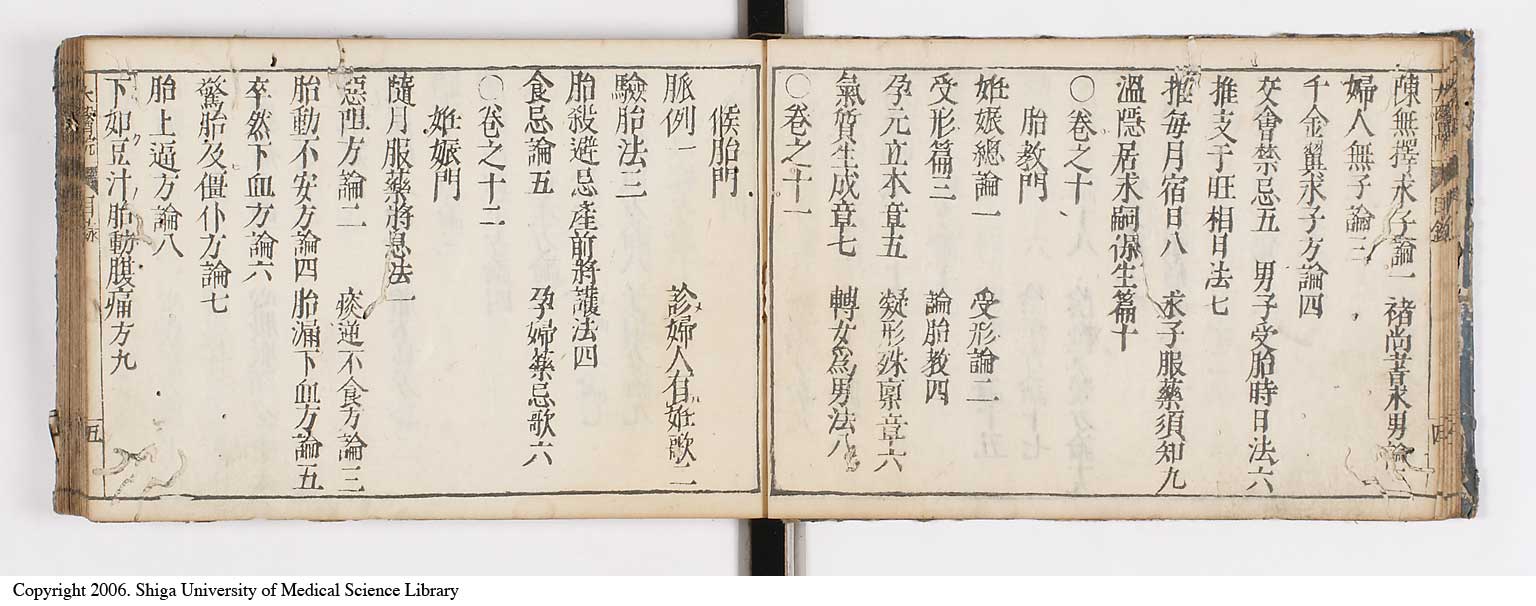 陳無擇求子論一 褚尚書求男論二
婦人無子論三
千金翼求子方論四
交會禁忌五 男子受胎時日法六
推支干旺相日法七
推每月宿日八 求子服藥須知九
溫隱居求嗣保生篇十
〇卷之十
胎教門
姙娠總論一 受形論二
受形篇三 論胎教四
孕元立本章五 凝形殊禀章六
氣質生成章七 轉女爲男法八
〇卷之十一
候胎門
脈例一 診婦人有姙歌二
驗胎法三
胎殺避忌產前將護法四
食忌論五 孕婦藥忌歌六
〇卷之十二
姙娠門
隨月服藥將息法一
惡阻方論二 痰逆不食方論三
胎動不安方論四 胎漏下血方論五
卒然下血方論六
驚胎及僵仆方論七
胎上逼方論八
下如豆汁胎動腹痛方九
目錄 五
Copyright 2006. Shiga University of Medical Science Library